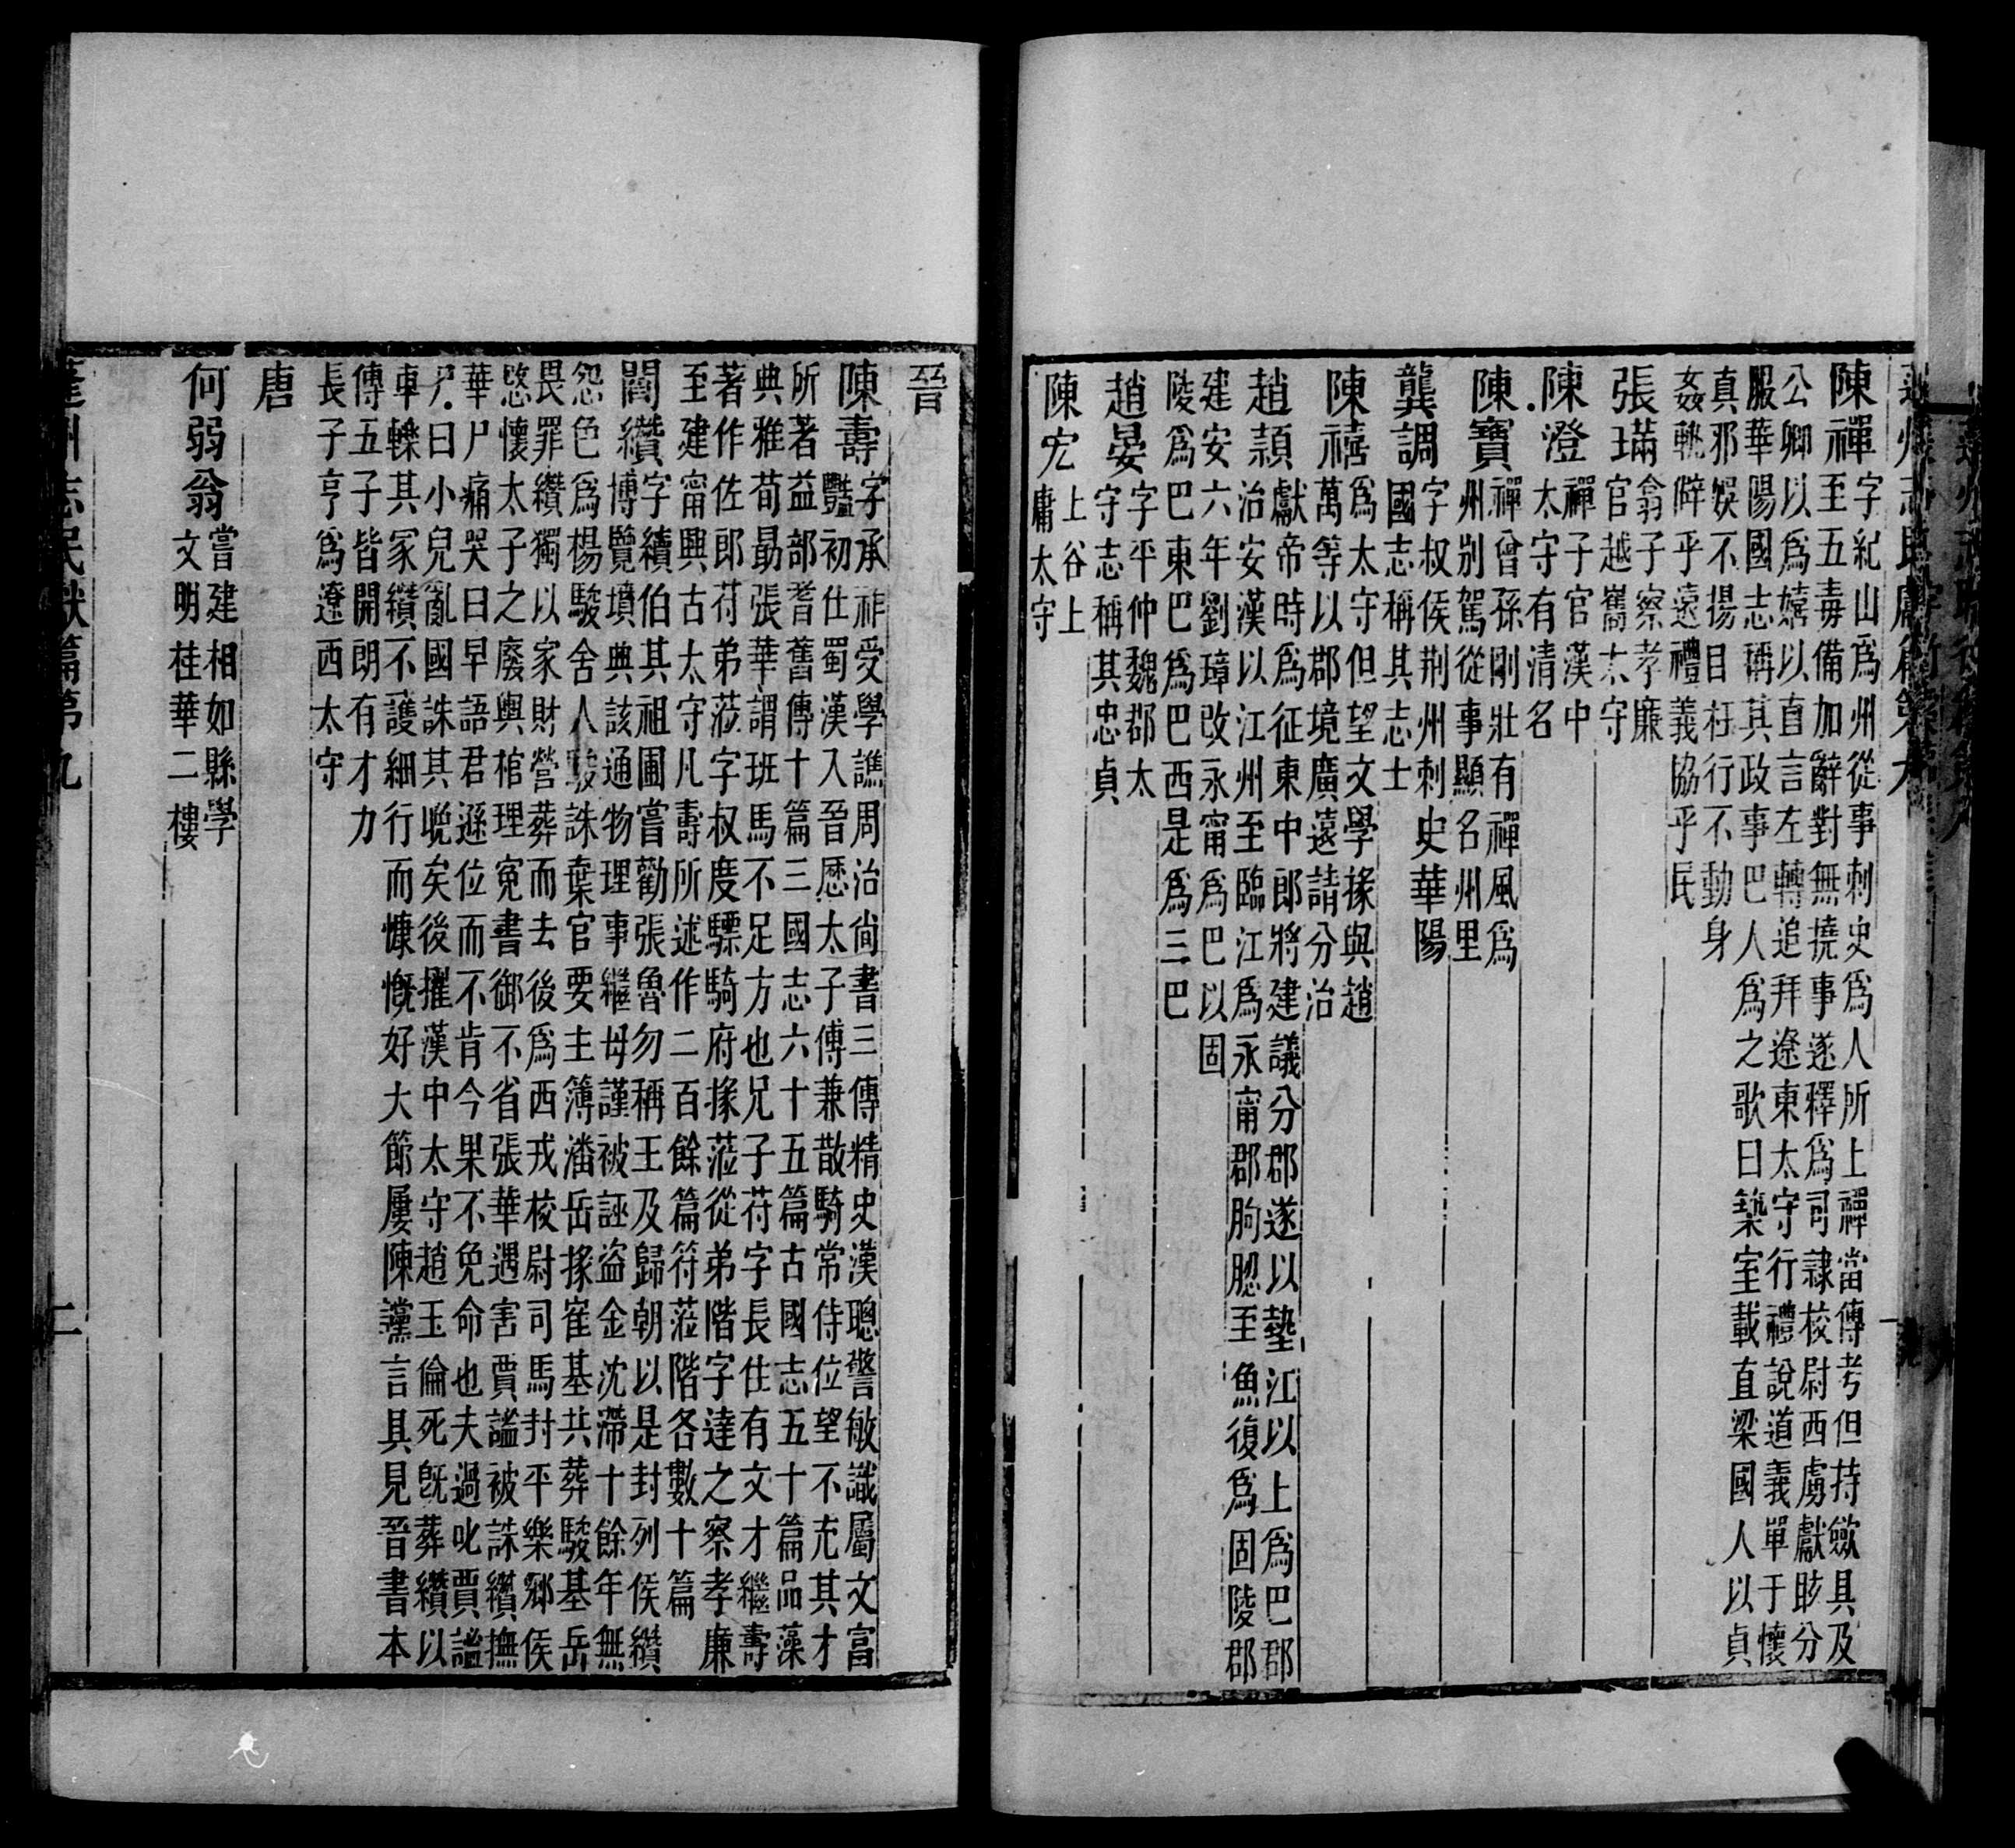 蓬州志民獻篇第九
陳禪
字紀山爲州從事刺史爲人所上禪當傳考但持斂具及
至五毒備加辭對無撓事遂釋爲司隸校尉西虜獻眩分
公卿以爲嬉以直言左轉追拜遼東太守行禮說道義單于懷
服華陽國志稱其政事巴人爲之歌曰築室載直梁國人以貞
真邪娛不揚目枉行不動身
姦軌僻乎遠禮義協乎民
張璊
翕子察孝廉
官越嶲太守
陳澄
禪子官漢中
太守有清名
陳寶
禪曾孫剛壯有禪風爲
州別駕從事顯名州里
龔調
字叔侯荆州刺史華陽
國志稱其志士
陳禧
爲太守但望文學掾與趙
萬等以郡境廣遠請分治
趙頴
獻帝時爲征東中郎將建議分郡遂以墊江以上爲巴郡
治安漢以江州至臨江爲永甯郡朐䏰至魚復爲固陵郡
建安六年劉璋改永甯爲巴以固
陵爲巴東巴爲巴西是爲三巴
趙晏
字平仲魏郡太
守志稱其忠貞
陳宏
上谷上
庸太守
晉
陳壽
字承祚受學譙周治尙書三傳精史漢聰警敏識屬文富
豔初仕蜀漢入晉歷太子傅兼散騎常侍位望不充其才
所著益部耆舊傳十篇三國志六十五篇古國志五十篇品藻
典雅荀勗張華謂班馬不足方也兄子苻字長住有文才繼壽
著作佐郎苻弟蒞字叔度驃騎府掾蒞從弟階字達之察孝廉
至建甯興古太守凡壽所述作二百餘篇符蒞階各數十篇
閻纘
字續伯其祖圃嘗勸張魯勿稱王及歸朝以是封列侯纘
博覽墳典該通物理事繼母謹被誣盗金沈滯十餘年無
怨色爲楊駿舍人駿誅棄官要主簿潘岳掾崔基共葬駿基岳
畏罪纘獨以家財營葬而去後爲西戎校尉司馬封平樂鄉侯
愍懷太子之廢輿棺理寃書御不省張華遇害賈謐被誅纘撫
華尸痛哭曰早語君遜位而不肯今果不免命也夫過叱賈謐
尸曰小兒亂國誅其晚矣後擢漢中太守趙王倫死旣葬纘以
車轢其冢纘不護細行而慷慨好大節屢陳讜言具見晉書本
傳五子皆開朗有才力
長子亨爲遼西太守
唐
何弱翁
嘗建相如縣學
文明桂華二樓
蓬州志民獻篇第九
二